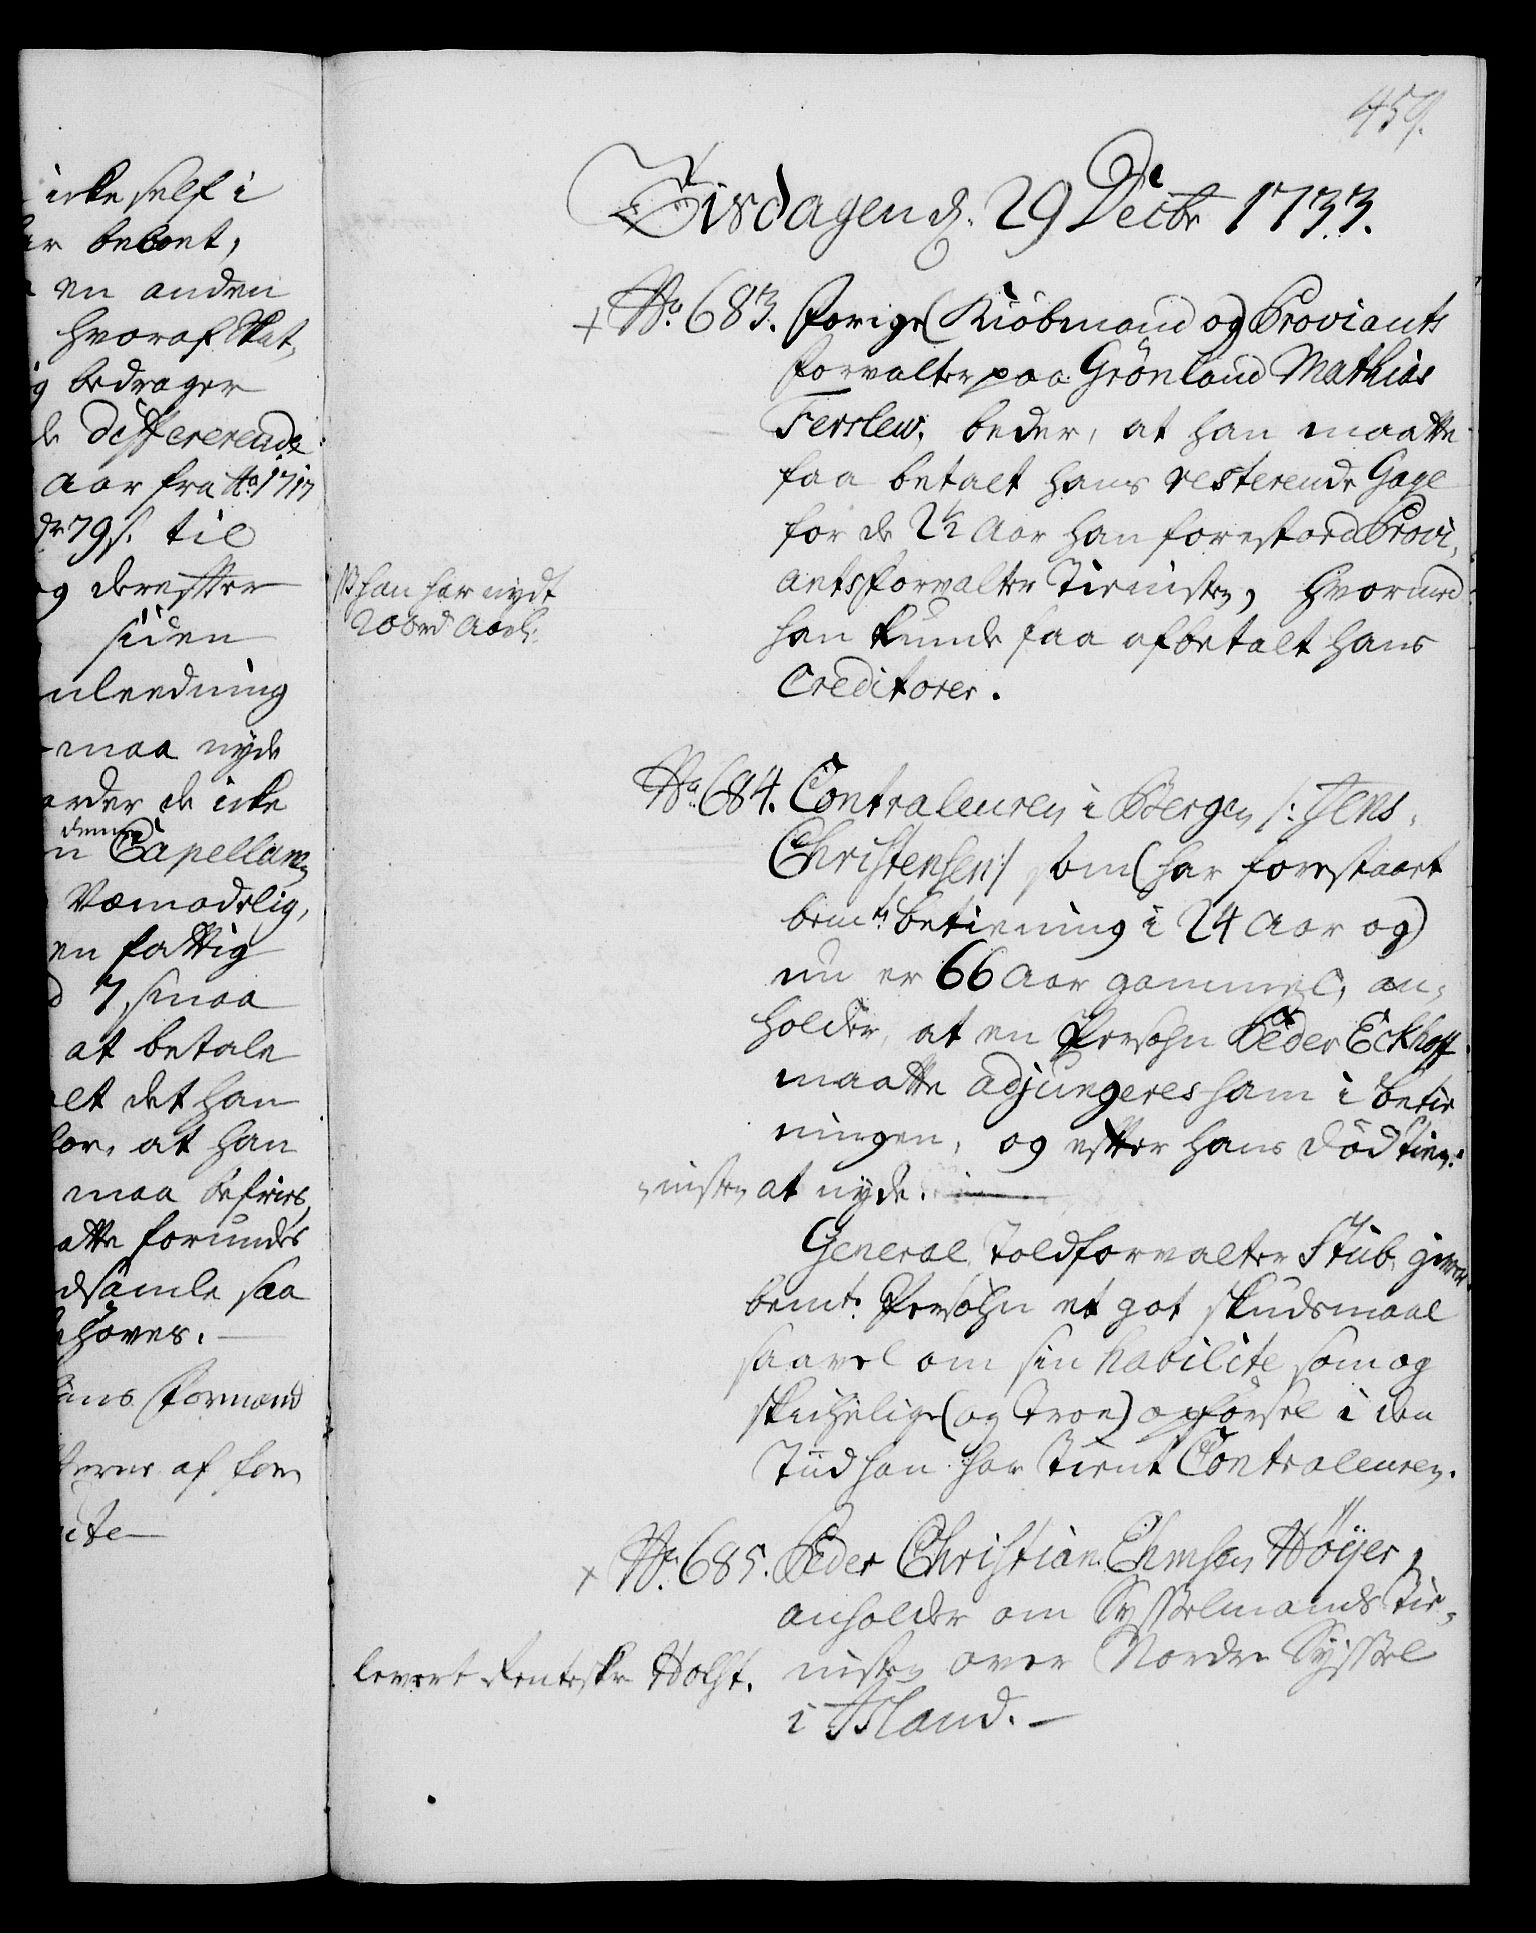 icke self i
beboet,
en anden
hvoraf Skat,
bedrager
de differerende
Aar fra Ao 1717
79 s. til
og derefter
siden
nleedning
maa nyde
de icke
denne
Capellan
Vemodelig,
en fattig
7 smaa
at betale
det han
for, at han
maa befries,
atte forundes
dsamle saa
ehøves.
ans Formand
af
459.
Tisdagen d. 29 Decbr 1733.
+ No. 683. Forige (Kiøbmand og) Proviants
forvalter paa Grønland Mathias
Ferslew. beder, at han maatte
faa betalt hans resterende Gage
for de 2½ Aar han forestod Provi,
antsforvalter Tienisten, hvormed
han kunde faa afbetalt hans
Creditores.
han har nydt
200rd Aarl:
No. 684. Contraleuren i Bergen /: Jens
Christensen :/ som (har forestaaet
bemte betiening i 24 Aar og)
nu er 66 Aar gammel, an,
holder, at en Persohn Peder Eckhoff
maatte adjungeres ham i betie
ningen, og efter hans død tien:
nisten at nyde.
General Toldforvalter Stub. giver
bemt. Persohn et got skudsmaal
saavel om sin habilite som og
skichelige (og troe) opførsel i den
Tiid han har tient Contraleuren.
+ No. 685. Peder Christian Ehmsen Høyer,
anholder om Sysselmands Tie,
nisten over Norder Syssel
i Island.
levert Renteskr. Holst.